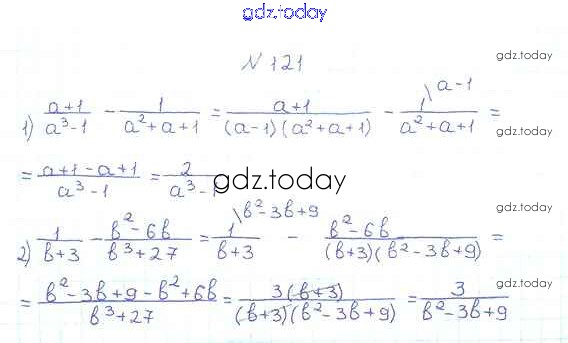 gdz.today
N 121
gdz.today
a-1
1) (a+1)/(a³-1) - 1/(a²+a+1) = (a+1)/((a-1)(a²+a+1)) - 1/(a²+a+1) =
gdz.today
= (a+1-a+1)/(a³-1) = 2/(a³-1)
gdz.today
gdz.today
b²-3b+9
2) 1/(b+3) - (b²-6b)/(b³+27) = 1/(b+3) - (b²-6b)/((b+3)(b²-3b+9)) =
gdz.today
= (b²-3b+9-b²+6b)/(b³+27) = 3(b+3)/((b+3)(b²-3b+9)) = 3/(b²-3b+9)
gdz.today